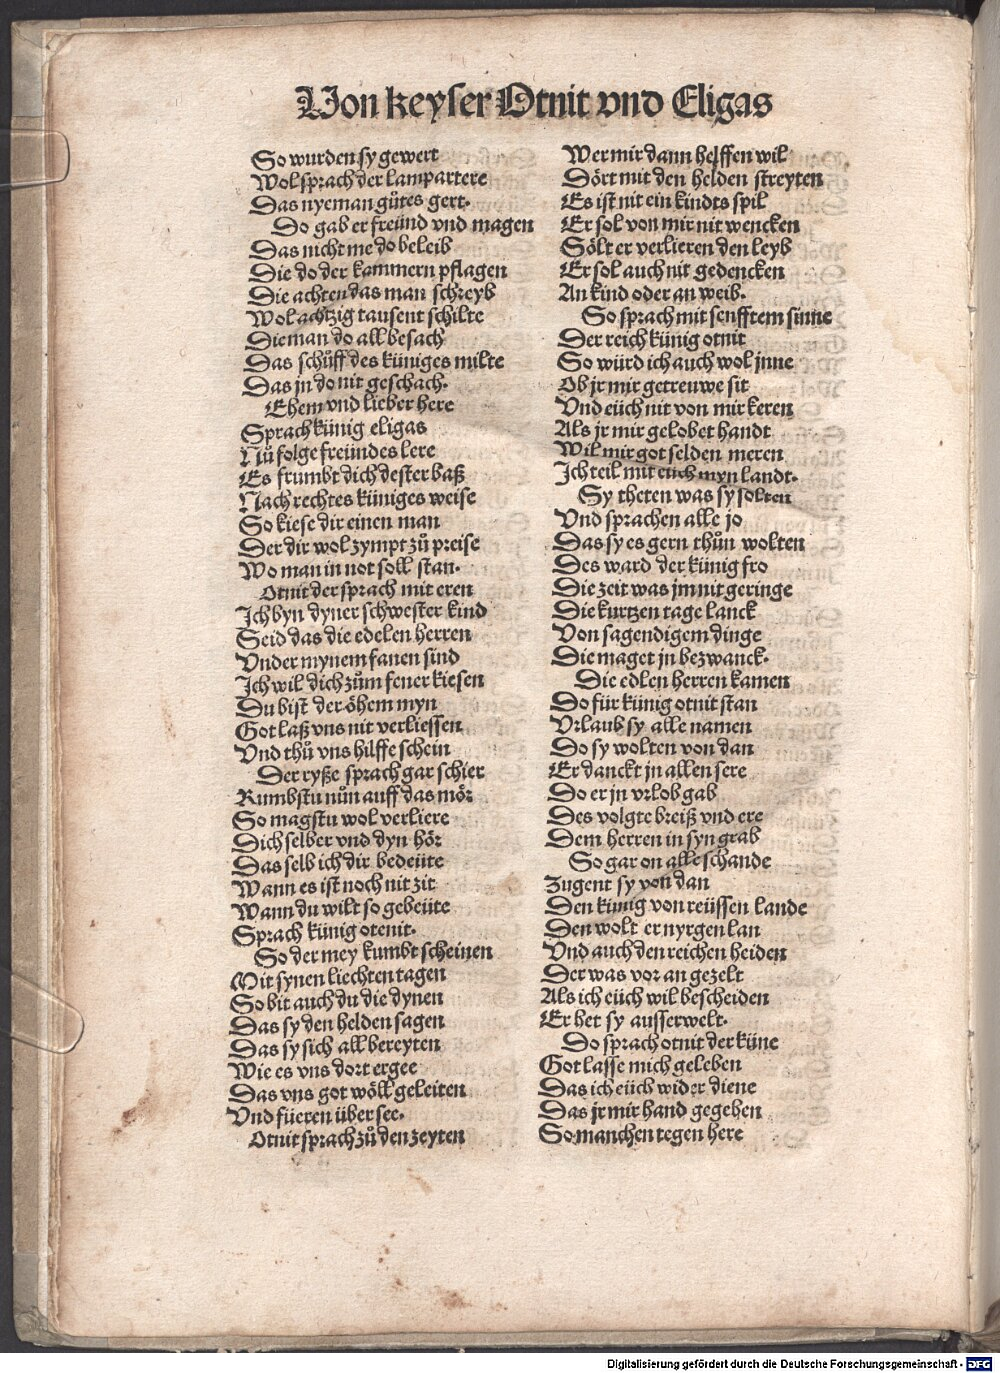 Von keyser Otnit vnd Eligas
So wurden sy gewert
Wol sprach der lampartere
Das nyeman gůtes gert.
Do gab er freünd vnd magen
Das nicht me do beleib
Die do der kammern pflagen
Die achten das man schreyb
Wol achtzig tausent schilte
Die man do all besach
Das schüff des küniges milte
Das jn do nit geschach.
Ehem vnd lieber here
Sprach künig eligas
Nů folge freündes lere
Es frumbt dich dester baß
Nach rechtes küniges weise
So kiese dir einen man
Der dir wol zympt zů preise
Wo man in not soll stan.
Otnit der sprach mit eren
Jch byn dyner schwester kind
Seid das die edelen herren
Vnder mynem fanen sind
Jch wil dich zům fener kiesen
Du bist der öhem myn
Got laß vns nit verliessen
Vnd thů vns hilffe schein
Der ryße sprach gar schier
Kumbstu nůn auff das mör
So magstu wol verliere
Dich selber vnd dyn hör
Das selb ich dir bedeüte
Wann es ist noch nit zit
Wann du wilt so gebeüte
Sprach künig otenit.
So der mey kumbt scheinen
Mit synen liechten tagen
So bit auch du die dynen
Das sy den helden sagen
Das sy sich all bereyten
Wie es vns dort ergee
Das vns got wöll geleiten
Vnd füeren über see.
Otnit sprach zů den zeyten
Wer mir dann helffen wil
Dört mit den helden streyten
Es ist nit ein kindts spil
Er sol von mir nit wencken
Sölt er verlieren den leyb
Er sol auch nit gedencken
An kind oder an weib.
So sprach mit senfftem sinne
Der reich künig otnit
So würd ich auch wol jnne
Ob jr mir getreuwe sit
Vnd eüch nit von mir keren
Als jr mir gelobet handt
Wil mir got selden meren
Jch teil mit euch myn landt.
Sy theten was sy solten
Vnd sprachen alle jo
Das sy es gern thůn wolten
Des ward der künig fro
Die zeit was jm nit geringe
Die kurtzen tage lanck
Von sagendigem dinge
Die maget jn bezwanck.
Die edlen herren kamen
Do für künig otnit stan
Vrlaub sy alle namen
Do sy wolten von dan
Er danckt jn allen sere
Do er jn vrlob gab
Des volgte breiß vnd ere
Dem herren in syn grab
So gar on alle schande
Zugent sy von dan
Den künig von reüssen lande
Den wolt er nyrgen lan
Vnd auch den reichen heiden
Der was vor an gezelt
Als ich eüch wil bescheiden
Er het sy ausserwelt.
Do sprach otnit der küne
Got lasse mich geleben
Das ich eüch wider diene
Das jr mir hand gegeben
So manchen tegen here
Digitalisierung gefördert durch die Deutsche Forschungsgemeinschaft - DFG